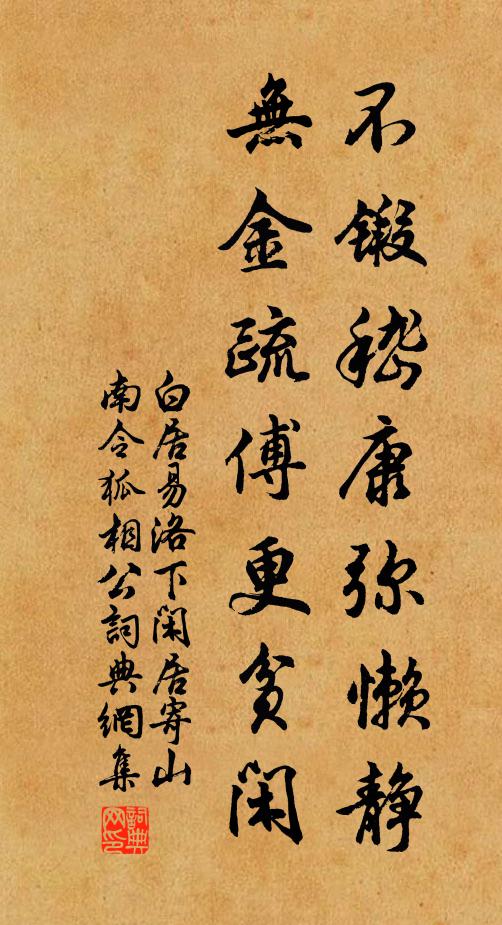 不鍛嵇康弥懶静
無金疏傅更貧閑
白居易洛下閑居寄山
南令狐相公詞典網集
詞典
网印